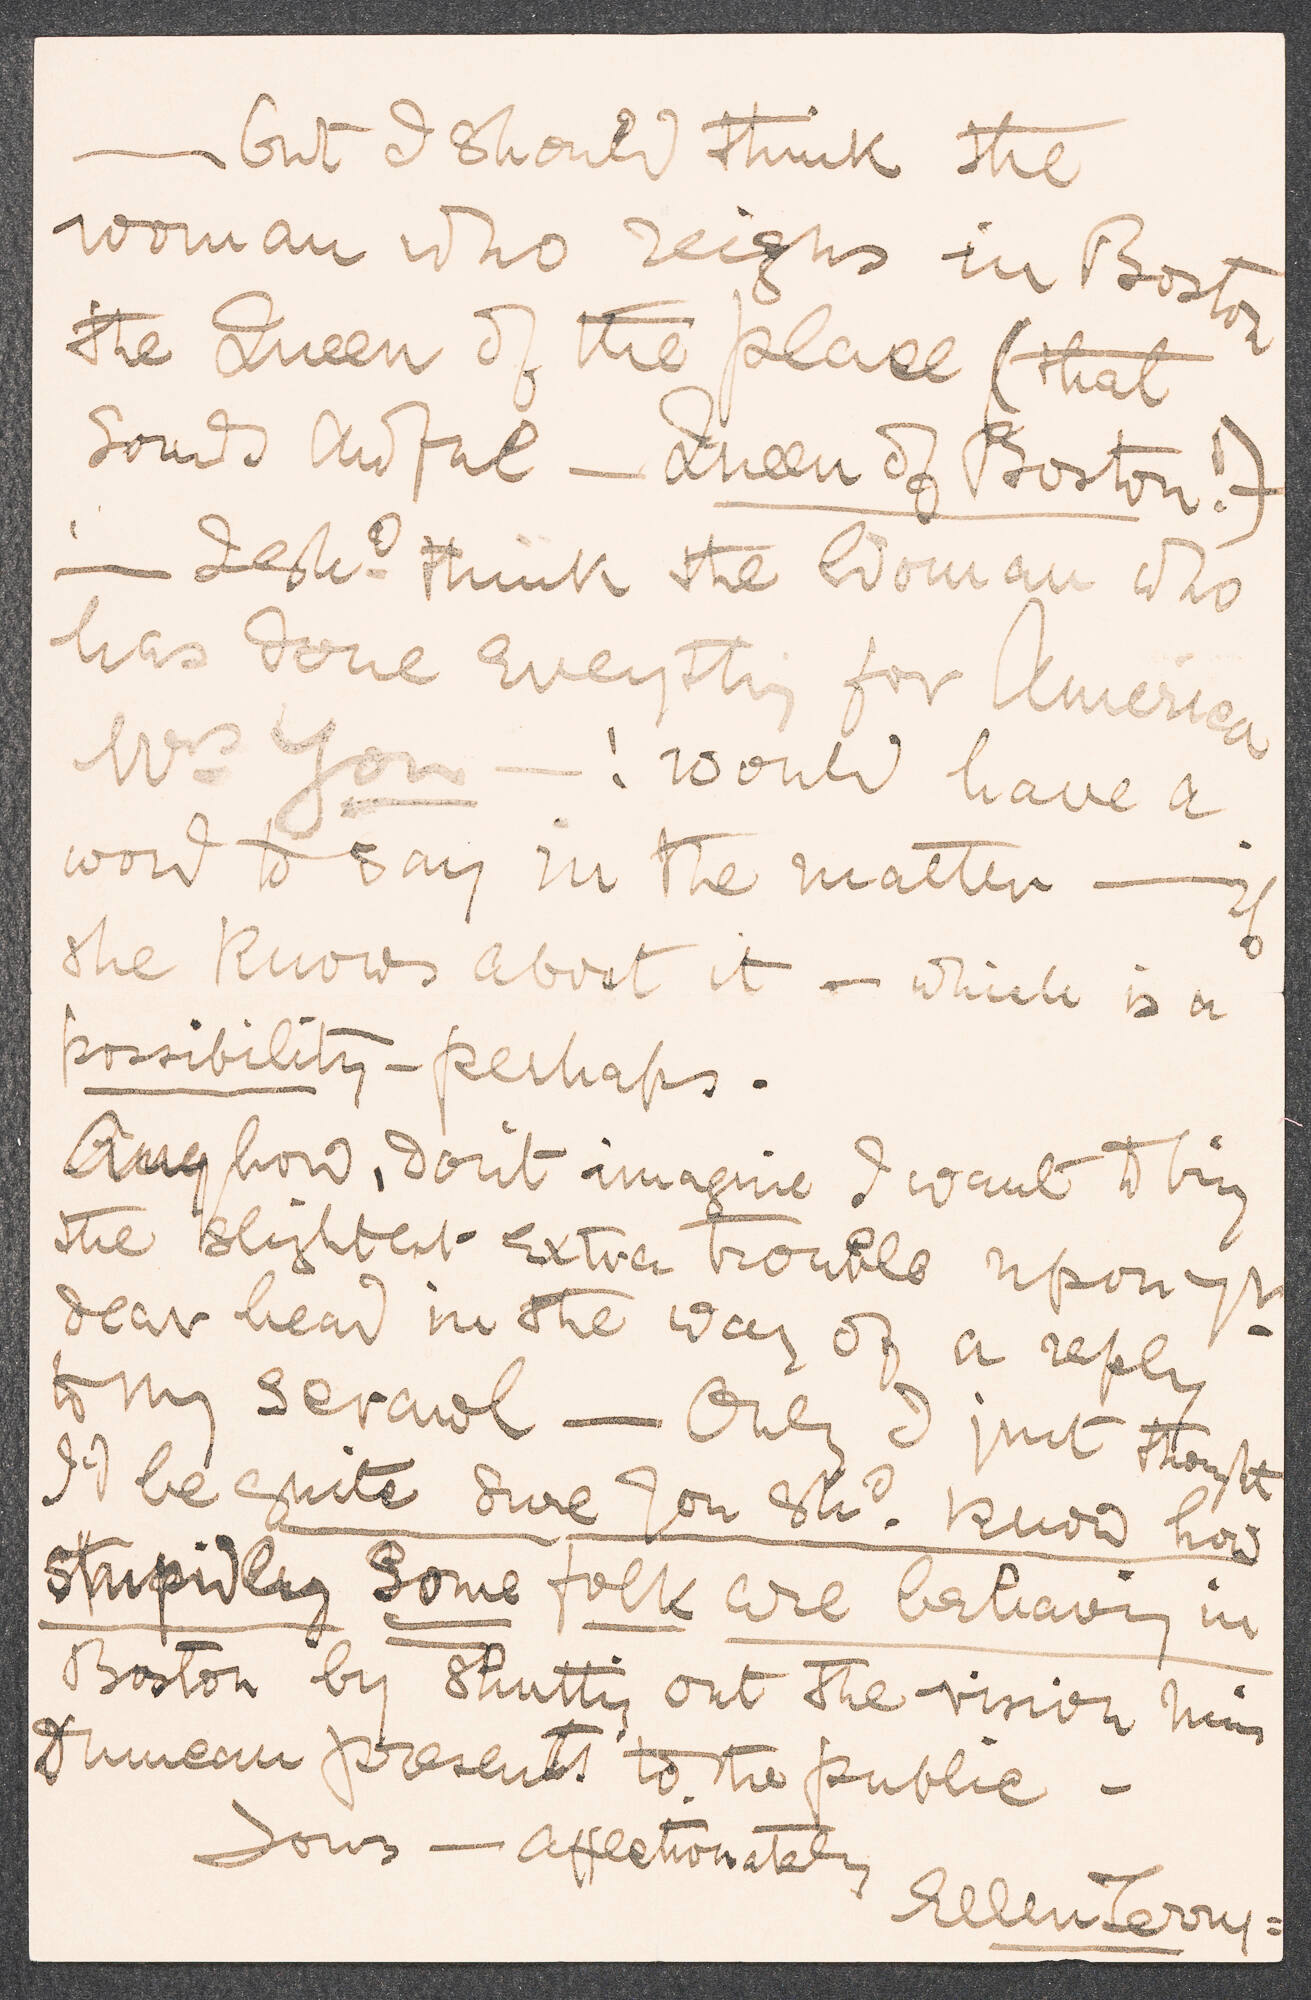 — but I should think the
woman who reigns in Boston
the Queen of the place (that
sounds awful — Queen of Boston!)
— I shd. think the Woman who
has done everything for America
Mrs You — ! would have a
word to say in the matter — if
she knows about it — which is a
possibility — perhaps.
Anyhow, don't imagine I want to bring
the slightest extra trouble upon yr.
dear head in the way of a reply
to my scrawl — Only I just thought
I'd be quite sure you shd. know how
stupidly some folk are behaving in
Boston by shutting out the vision Miss
Duncan presents to the public —
Yours — affectionately
Ellen Terry =